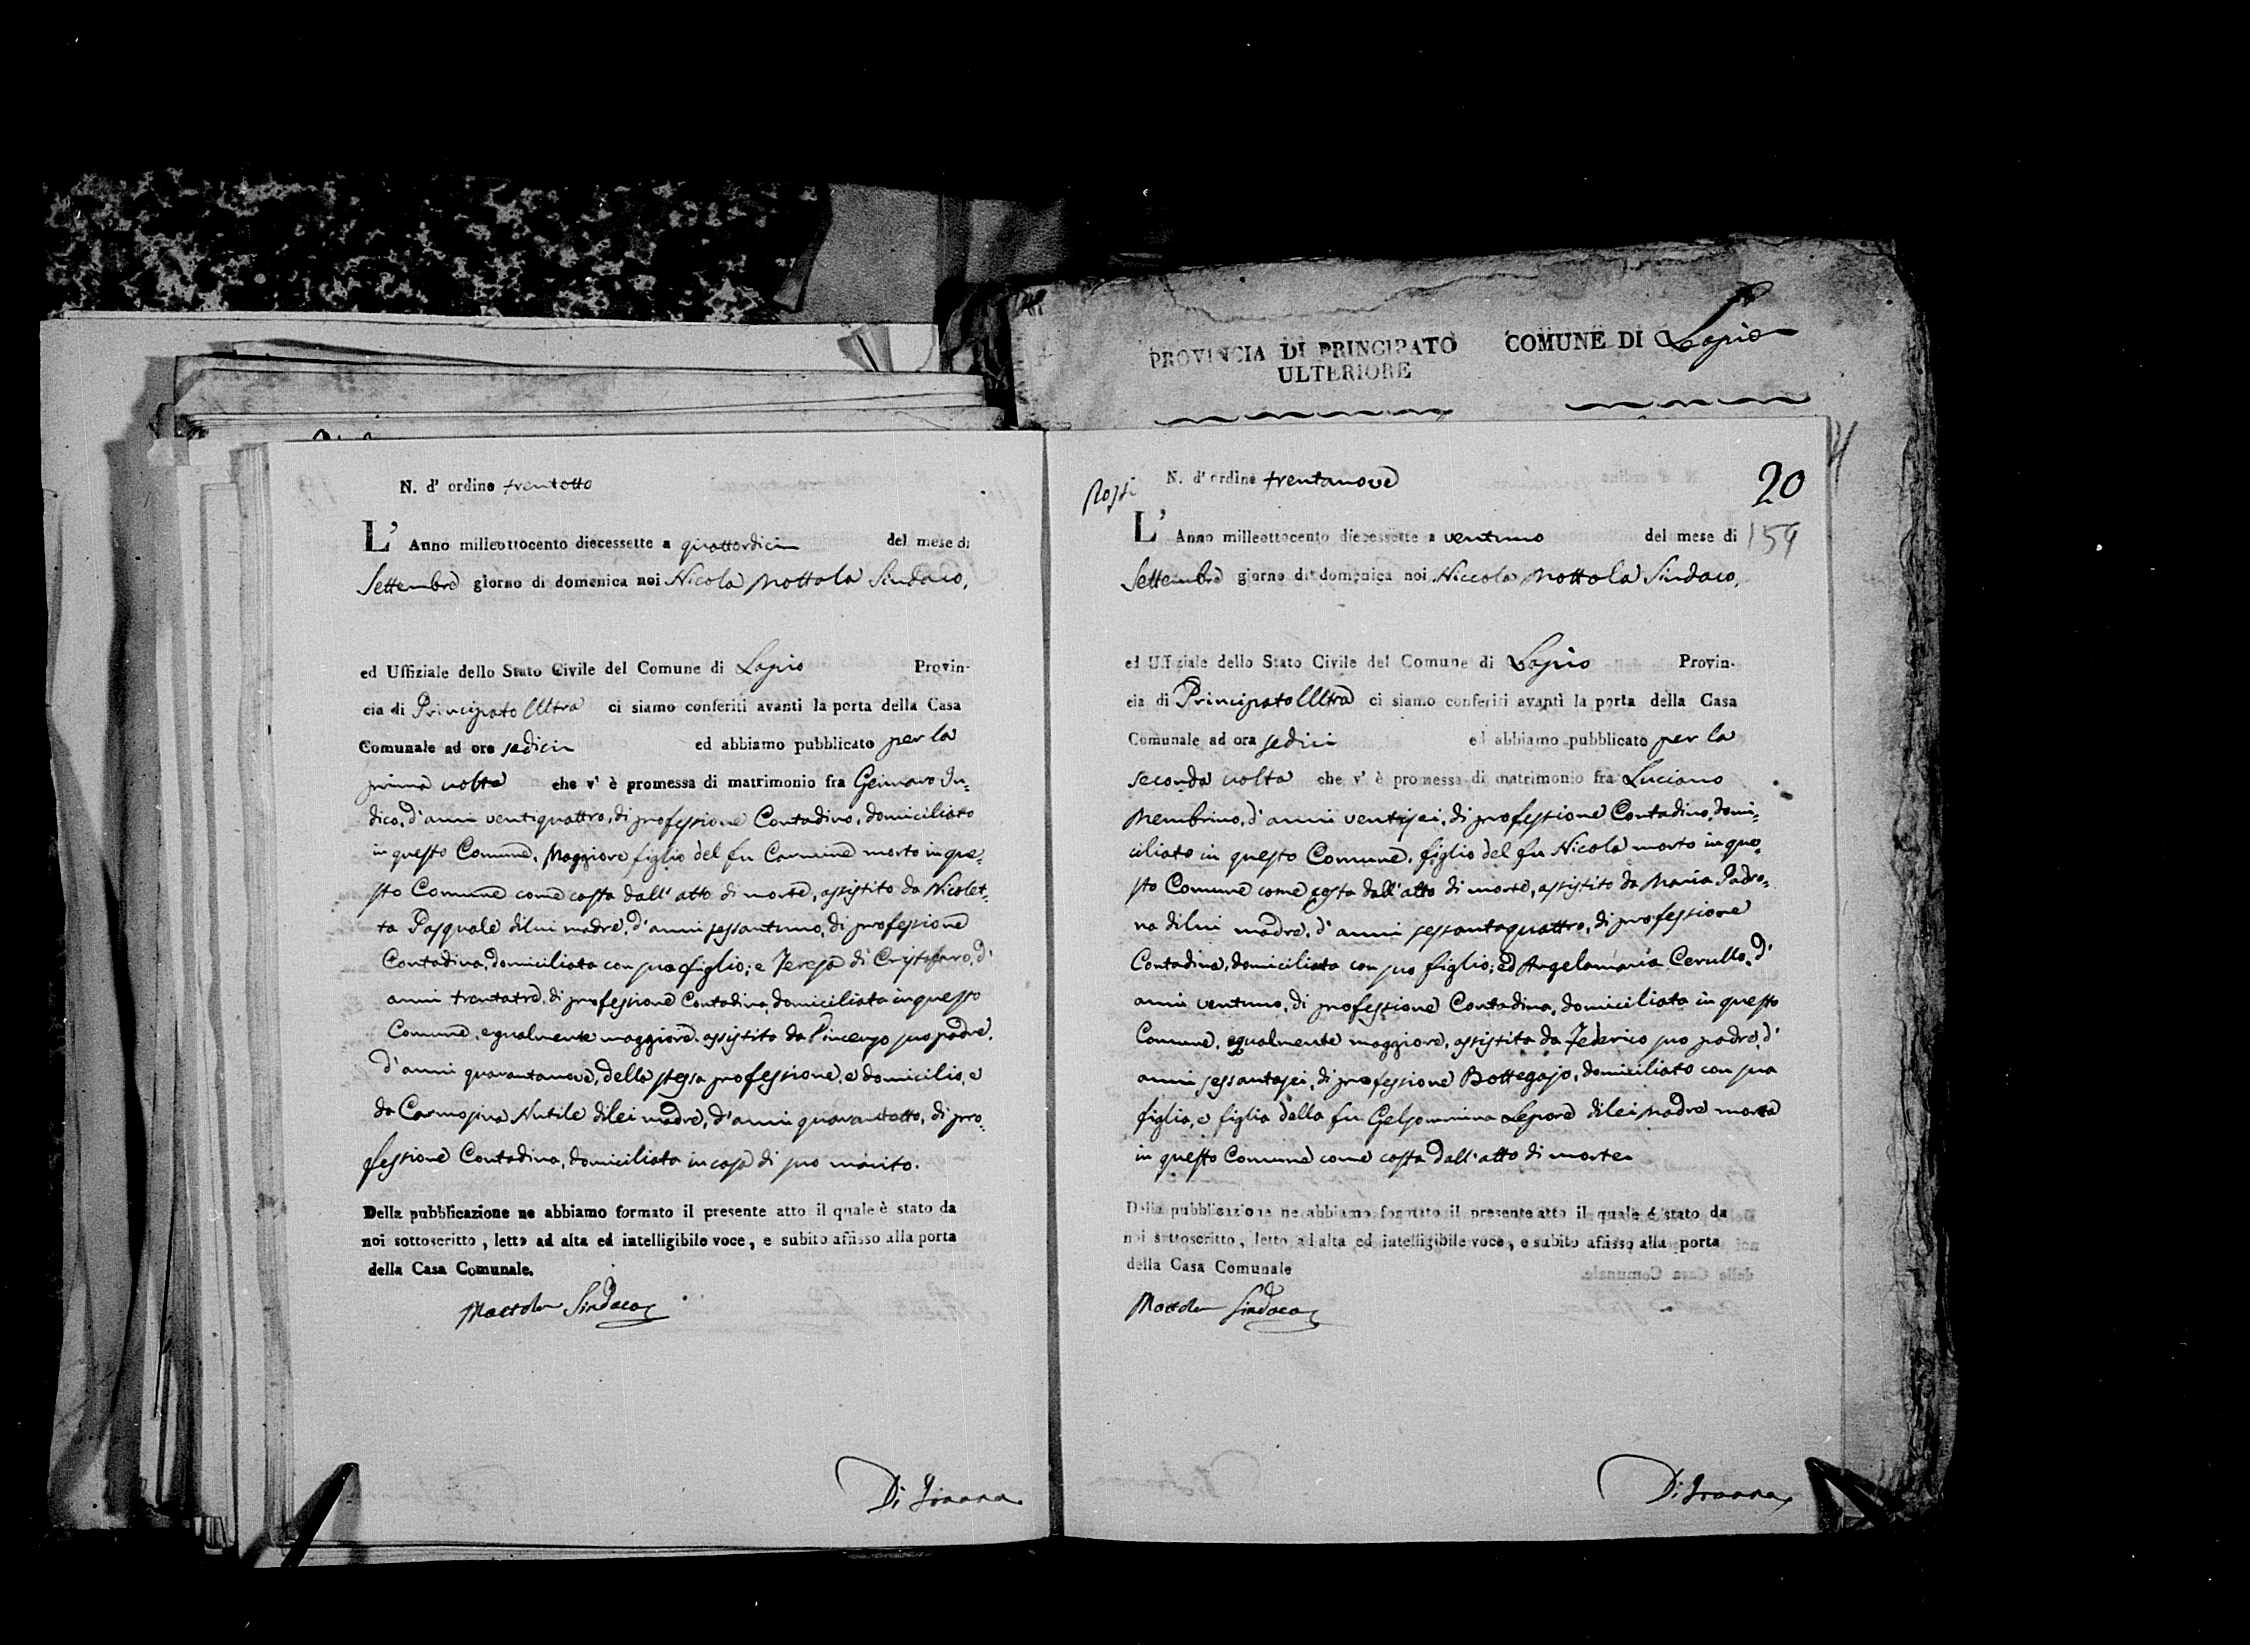 PROVINCIA DI PRINCIPATO
ULTERIORE
COMUNE DI Lapio
N. d' ordine trentotto
L' Anno milleottocento diecessette a quattordici del mese di
Settembre giorno di domenica noi Nicola Nottola Sindaco,
ed Uffiziale dello Stato Civile del Comune di Lapio Provin-
cia di Principato Ultra ci siamo conferiti avanti la porta della Casa
Comunale ad ore sedici ed abbiamo pubblicato per la
prima volta che v' è promessa di matrimonio fra Gennaro Iu-
dico, d'anni ventiquattro, di professione Contadino, domiciliato
in questo Comune, Maggiore figlio del fu Carmine morto in que-
sto Comune come costa dall'atto di morte, assistito da Nicolet-
ta Pasquale di lui madre, d'anni sessantuno, di professione
Contadina, domiciliata con suo figlio; e Teresa di Cristofaro, d'
anni trentatre, di professione Contadina, domiciliata in questo
Comune, egualmente maggiore, assistito da Vincenzo suo padre,
d'anni quarantanove, della stessa professione, e domicilio, e
da Carmosina Nutile di lei madre, d'anni quarantotto, di pro-
fessione Contadina, domiciliata in casa di suo marito.
Della pubblicazione ne abbiamo formato il presente atto il quale è stato da
noi sottoscritto, letto ad alta ed intelligibile voce, e subito affisso alla porta
della Casa Comunale.
Nottola Sindaco
20
159
N. d' ordine trentanove
L' Anno milleottocento diecessette a ventuno del mese di
Settembre giorno di domenica noi Niccola Nottola Sindaco,
ed Uffiziale dello Stato Civile del Comune di Lapio Provin-
cia di Principato Ultra ci siamo conferiti avanti la porta della Casa
Comunale ad ora sedici ed abbiamo pubblicato per la
seconda volta che v' è promessa di matrimonio fra Luciano
Membrino, d'anni ventisei, di professione Contadino, domi-
ciliato in questo Comune, figlio del fu Nicola morto in que-
sto Comune come costa dall'atto di morte, assistito da Maria Padro-
na di lui madre, d'anni sessantaquattro, di professione
Contadina, domiciliata con suo figlio; ed Angelamaria Cerullo, d'
anni ventuno, di professione Contadina, domiciliata in questo
Comune, egualmente maggiore, assistita da Federico suo padre, d'
anni sessantasei, di professione Bottegajo, domiciliato con sua
figlia, e figlia della fu Gelsommina Lepore di lei madre morta
in questo Comune come costa dall'atto di morte.
Della pubblicazione ne abbiamo formato il presente atto il quale è stato da
noi sottoscritto, letto ad alta ed intelligibile voce, e subito affisso alla porta
della Casa Comunale
Nottola Sindaco